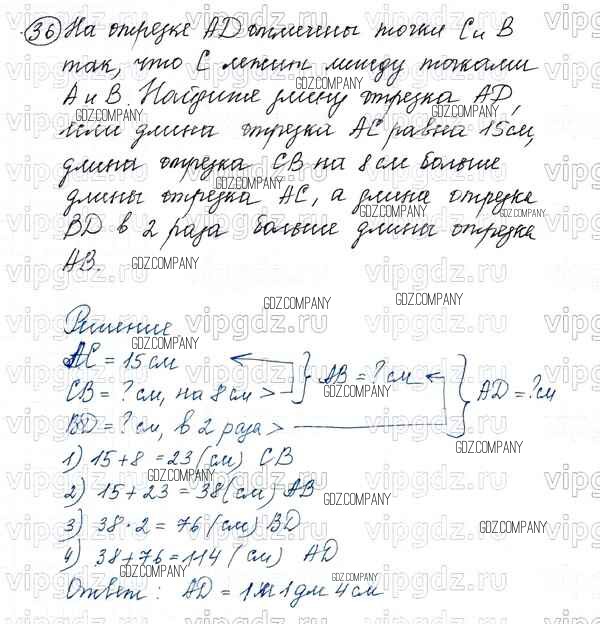 36 На отрезке AD отмечены точки C и B
так, что C лежит между точками
A и B. Найдите длину отрезка AD,
если длина отрезка AC равна 15 см,
длина отрезка CB на 8 см больше
длины отрезка AC, а длина отрезка
BD в 2 раза больше длины отрезка
AB.
Решение
AC = 15 см
CB = ? см, на 8 см > } AB = ? см } AD = ? см
BD = ? см, в 2 раза >
1) 15 + 8 = 23 (см) CB
2) 15 + 23 = 38 (см) AB
3) 38 · 2 = 76 (см) BD
4) 38 + 76 = 114 (см) AD
Ответ: AD = 1м 1дм 4см
GDZ.COMPANY
vipgdz.ru